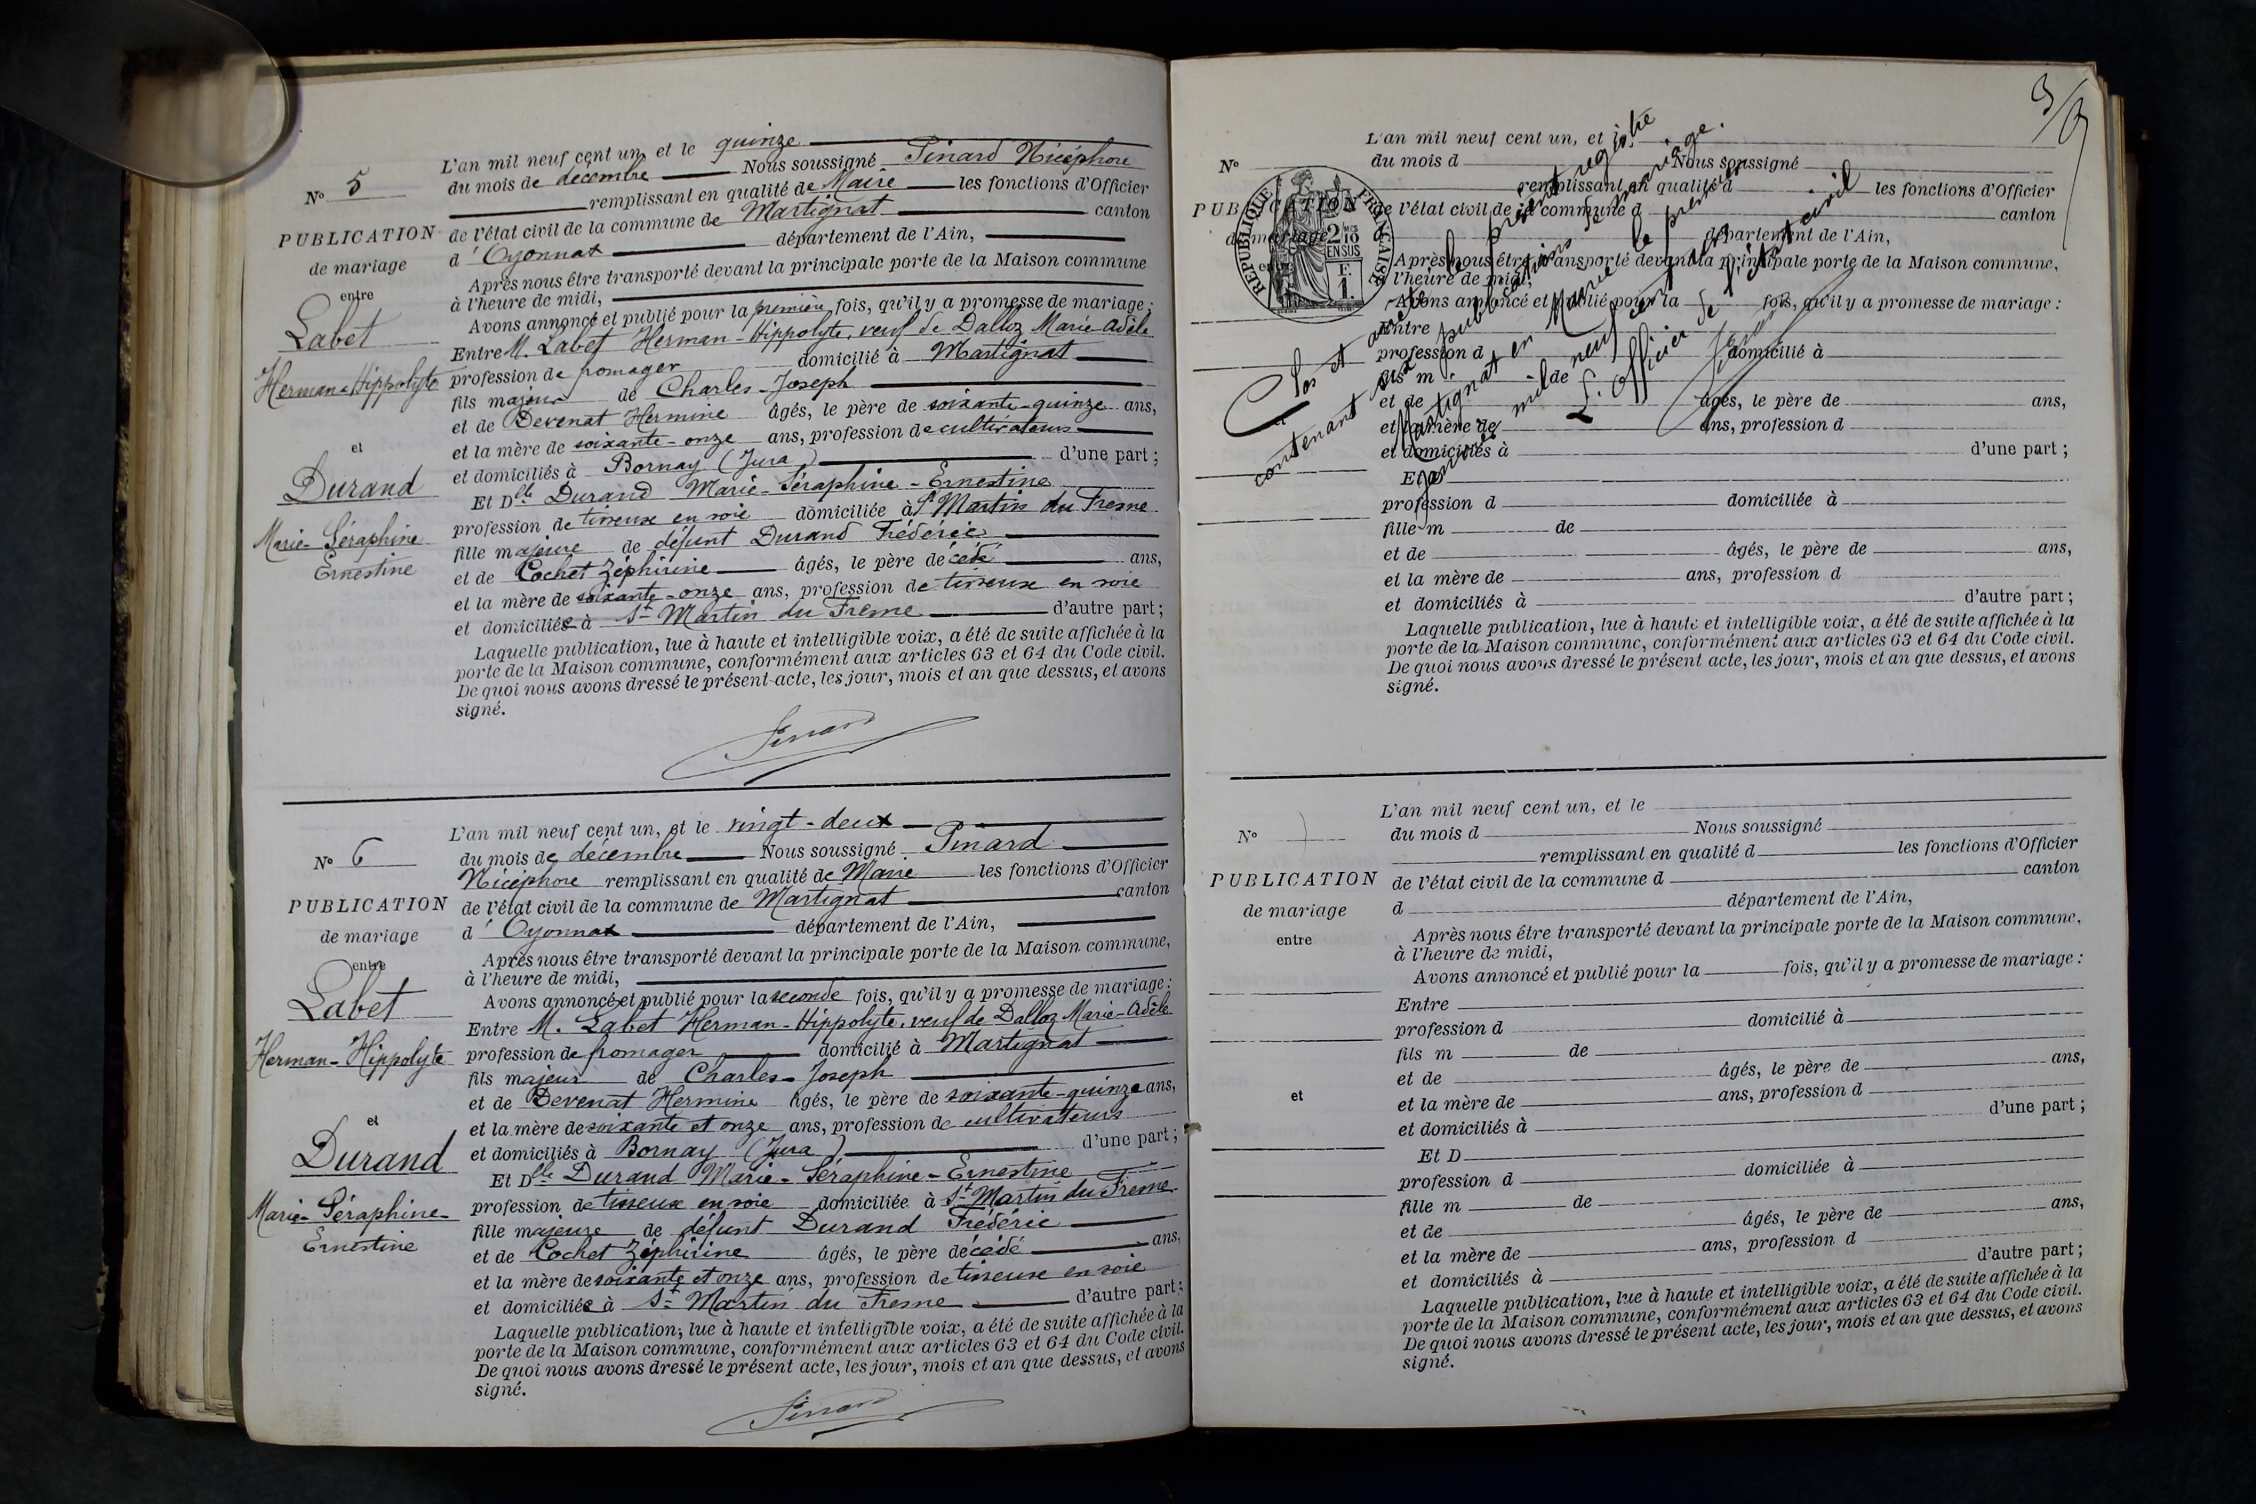 L'an mil neuf cent un, et le quinze
du mois de décembre Nous soussigné Pinard Nicéphore
remplissant en qualité de Maire les fonctions d'Officier
de l'état civil de la commune de Martignat canton
d'Oyonnax département de l'Ain,
Après nous être transporté devant la principale porte de la Maison commune
à l'heure de midi,
Avons annoncé et publié pour la première fois, qu'il y a promesse de mariage :
Entre M. Labet Herman-Hippolyte, veuf de Dalloz Marie-Adèle
profession de fromager domicilié à Martignat
fils majeur de Charles-Joseph
et de Devenat Hermine âgés, le père de soixante-quinze ans,
et la mère de soixante-onze ans, profession de cultivateurs
et domiciliés à Bornay (Jura) d'une part ;
Et Dlle Durand Marie-Séraphine-Ernestine
profession de tisseuse en soie domiciliée à St Martin du Fresne
fille majeure de défunt Durand Frédéric
et de Cochet Zéphirine âgés, le père décédé ans,
et la mère de soixante-onze ans, profession de tisseuse en soie
et domiciliée à St Martin du Fresne d'autre part ;
Laquelle publication, lue à haute et intelligible voix, a été de suite affichée à la
porte de la Maison commune, conformément aux articles 63 et 64 du Code civil.
De quoi nous avons dressé le présent acte, les jour, mois et an que dessus, et avons
signé.
Pinard
No 5
PUBLICATION
de mariage
entre
Labet
Herman-Hippolyte
et
Durand
Marie-Séraphine
Ernestine
L'an mil neuf cent un, et le vingt-deux
du mois de décembre Nous soussigné Pinard
Nicéphore remplissant en qualité de Maire les fonctions d'Officier
de l'état civil de la commune de Martignat canton
d'Oyonnax département de l'Ain,
Après nous être transporté devant la principale porte de la Maison commune,
à l'heure de midi,
Avons annoncé et publié pour la seconde fois, qu'il y a promesse de mariage :
Entre M. Labet Herman-Hippolyte, veuf de Dalloz Marie-Adèle
profession de fromager domicilié à Martignat
fils majeur de Charles-Joseph
et de Devenat Hermine âgés, le père de soixante-quinze ans,
et la mère de soixante et onze ans, profession de cultivateurs
et domiciliés à Bornay (Jura) d'une part ;
Et Dlle Durand Marie-Séraphine-Ernestine
profession de tisseuse en soie domiciliée à St Martin du Fresne
fille majeure de défunt Durand Frédéric
et de Cochet Zéphirine âgés, le père décédé ans,
et la mère de soixante et onze ans, profession de tisseuse en soie
et domiciliée à St Martin du Fresne d'autre part ;
Laquelle publication, lue à haute et intelligible voix, a été de suite affichée à la
porte de la Maison commune, conformément aux articles 63 et 64 du Code civil.
De quoi nous avons dressé le présent acte, les jour, mois et an que dessus, et avons
signé.
Pinard
No 6
PUBLICATION
de mariage
entre
Labet
Herman-Hippolyte
et
Durand
Marie-Séraphine-
Ernestine
3
L'an mil neuf cent un, et le
du mois d Nous soussigné
remplissant en qualité d les fonctions d'Officier
de l'état civil de la commune d canton
d département de l'Ain,
Après nous être transporté devant la principale porte de la Maison commune,
à l'heure de midi,
Avons annoncé et publié pour la fois, qu'il y a promesse de mariage :
Entre
profession d domicilié à
fils m de
et de âgés, le père de ans,
et la mère de ans, profession d
et domiciliés à d'une part ;
Et D
profession d domiciliée à
fille m de
et de âgés, le père de ans,
et la mère de ans, profession d
et domiciliés à d'autre part ;
Laquelle publication, lue à haute et intelligible voix, a été de suite affichée à la
porte de la Maison commune, conformément aux articles 63 et 64 du Code civil.
De quoi nous avons dressé le présent acte, les jour, mois et an que dessus, et avons
signé.
No
PUBLICATION
de mariage
entre
RÉPUBLIQUE FRANÇAISE
2/10
EN SUS
1 F.
Clos et arrêté le présent registre
contenant six publications de mariage.
Martignat en Mairie le premier
janvier mil neuf cent deux
L'officier de l'état civil
Pinard
L'an mil neuf cent un, et le
du mois d Nous soussigné
remplissant en qualité d les fonctions d'Officier
de l'état civil de la commune d canton
d département de l'Ain,
Après nous être transporté devant la principale porte de la Maison commune,
à l'heure de midi,
Avons annoncé et publié pour la fois, qu'il y a promesse de mariage :
Entre
profession d domicilié à
fils m de
et de âgés, le père de ans,
et la mère de ans, profession d
et domiciliés à d'une part ;
Et D
profession d domiciliée à
fille m de
et de âgés, le père de ans,
et la mère de ans, profession d
et domiciliés à d'autre part ;
Laquelle publication, lue à haute et intelligible voix, a été de suite affichée à la
porte de la Maison commune, conformément aux articles 63 et 64 du Code civil.
De quoi nous avons dressé le présent acte, les jour, mois et an que dessus, et avons
signé.
No
PUBLICATION
de mariage
entre
et